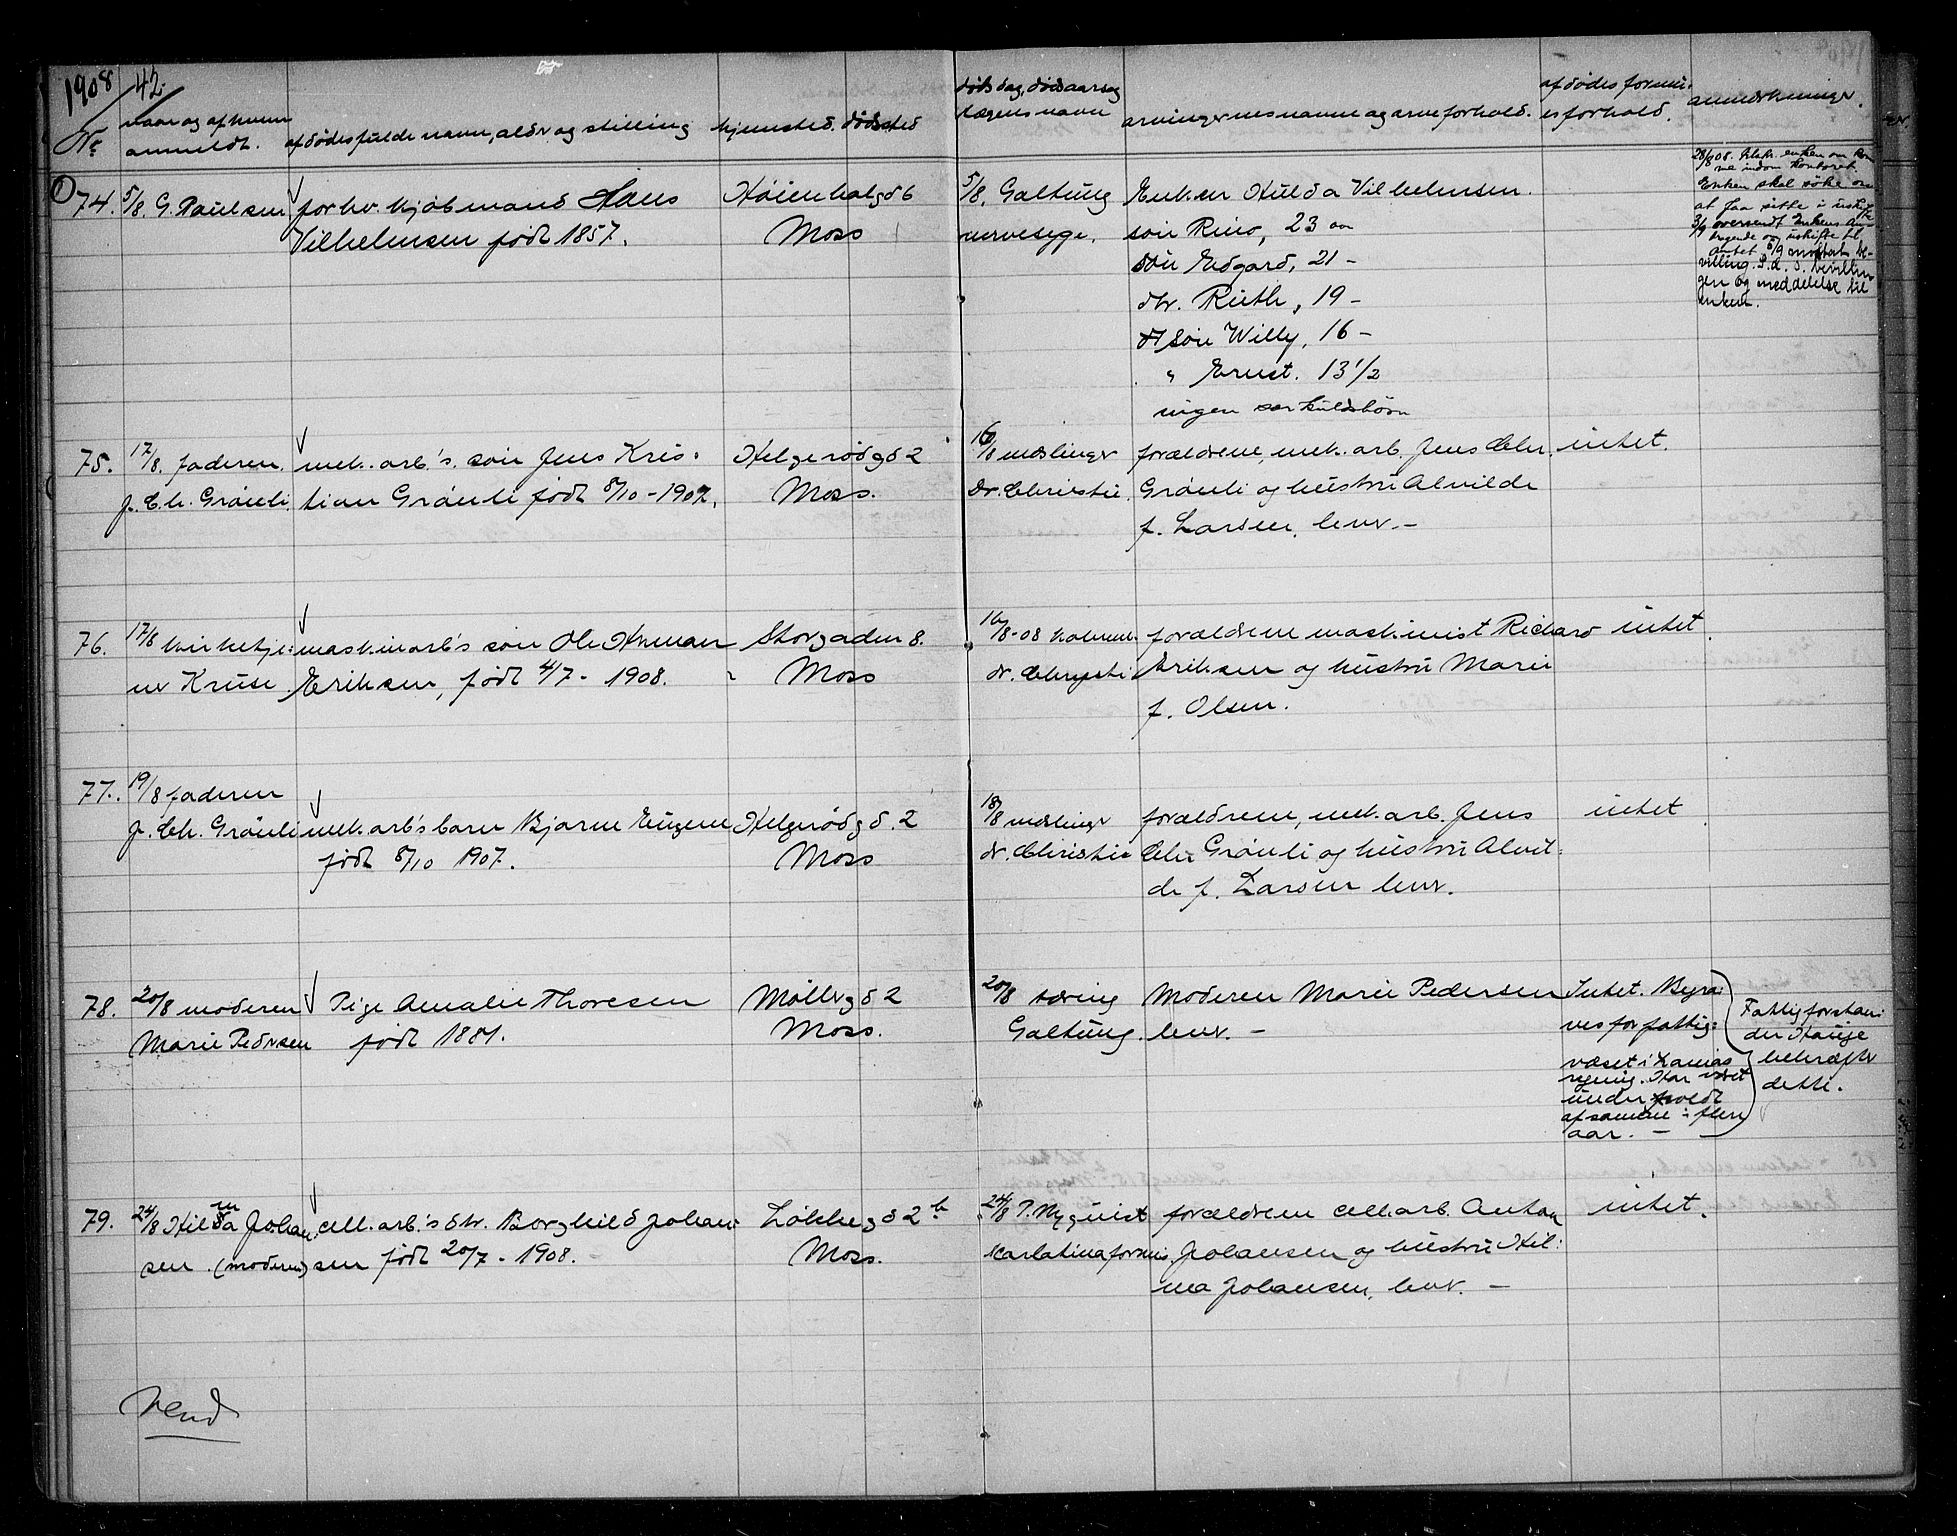 1908
42.
Nr
naar og af hvem anmeldt.
afdødes fulde navn, alder og stilling
hjemsted. dødssted
dødsdag, dødsaarsag
lægens navn
arvingernes navne og arveforhold.
afdødes formu-
esforhold.
anmerkninger.
74. 5/8. G. Paulsen
forhv. kjøbmand Hans
Vilhelmsen født 1857.
Høienhalgd 6
Moss
5/8. Galtung
nervesyge.
Enken Hulda Vilhelmsen.
søn Rino, 23 aar
søn Edgard, 21 -
dtr. Ruth, 19 -
søn Willy, 16 -
" Ernst. 13 1/2
ingen særkuldsbørn
28/8 08. tilskr. enken om kom
me indom kontoret.
Enken skal søke om
at faa sitte i uskifte
3/9 oversendt Enkens an-
dragende om uskifte til
amtet. 5/9 mottat be-
villing. S.d. s. bevillin
gen og meddelelse til
enken.
75. 17/8. faderen
J. Ch. Grönli
mek. arb.'s. søn Jens Kris-
tian Grönli født 8/10 - 1907.
Helgerødgd 2
Moss.
16/8 mæslinger
dr. Christie.
forældrene, mek. arb. Jens Chr.
Grönli og hustru Alvilde
f. Larsen, lever. -
intet.
76. 17/8 kirketje-
ner Kruse
maskinarb's søn Ole Herman
Eriksen, født 4/7 - 1908.
Storgaden 8.
Moss
16/8 - 08
dr. Christi
forældrene maskinist Richard
Eriksen og hustru Marie
f. Olsen.
intet.
77. 19/8 faderen
J. Ch. Grönli
mek. arb's barn Bjarne Eugene
født 8/10 1907.
Helgerødgd. 2
Moss
18/8 mæslinger
dr. Christie
forældrene, mek. arb. Jens
Chr Grönli og hustru Alvil-
de f. Larsen lever.
intet
78. 20/8 moderen
Marie Pedersen
Pige Amalie Thoresen
født 1881.
Møllergd 2
Moss.
20/8 tæring
Galtung.
Moderen Marie Pedersen
lever. -
Intet. Begra-
ves for fattig-
væset i Hanias
regning. Har været
underholdt
af samme i flere
aar. -
Fattigforstan-
der Hauge
bekræfter
dette.
79. 24/8 Hilma Johan-
sen (moderen)
cell. arb's dtr. Borghild Johan-
sen født 20/7 - 1908.
Løkkegd 2b
Moss.
24/8 P. Nyquist
scarlatina
forældrene cell. arb. Anton
Johansen og hustru Hil-
ma Johansen, lever. -
intet.
Vend